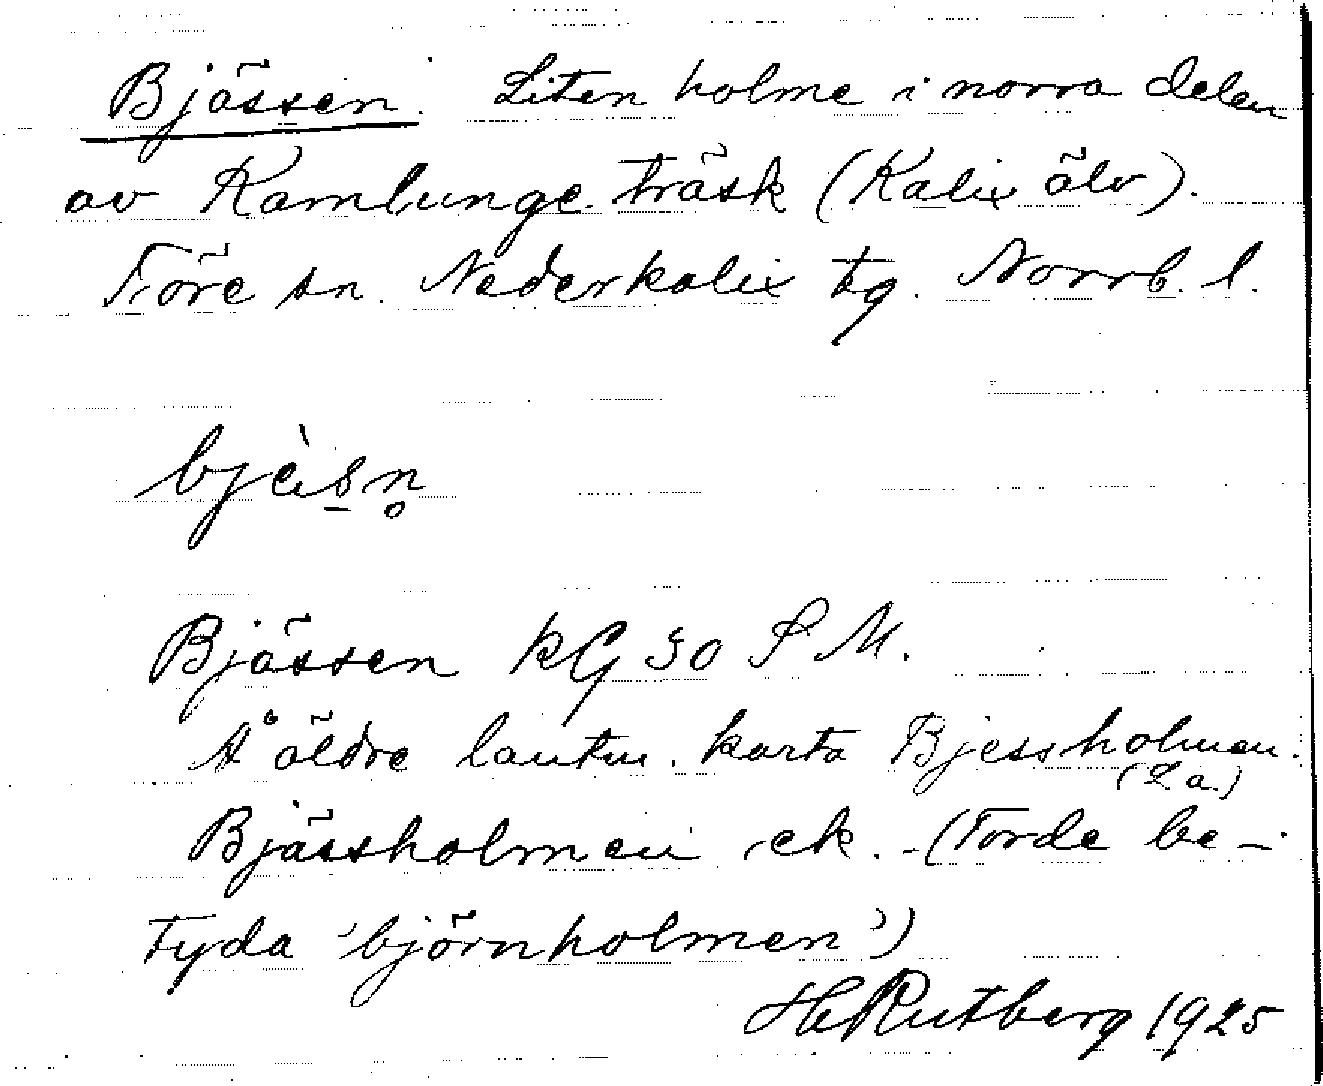 Bjässen. Liten holme i norra delen
av Kamlunge träsk (Kalix älv).
Töre sn. Nederkalix tg. Norrb. l.
bjèsn̥
Bjässen kG 30 S M.
Å äldre lantm. karta Bjessholmen.
(2 a.)
Bjässholmen ek. (Torde be-
tyda 'björnholmen')
HRutberg 1925